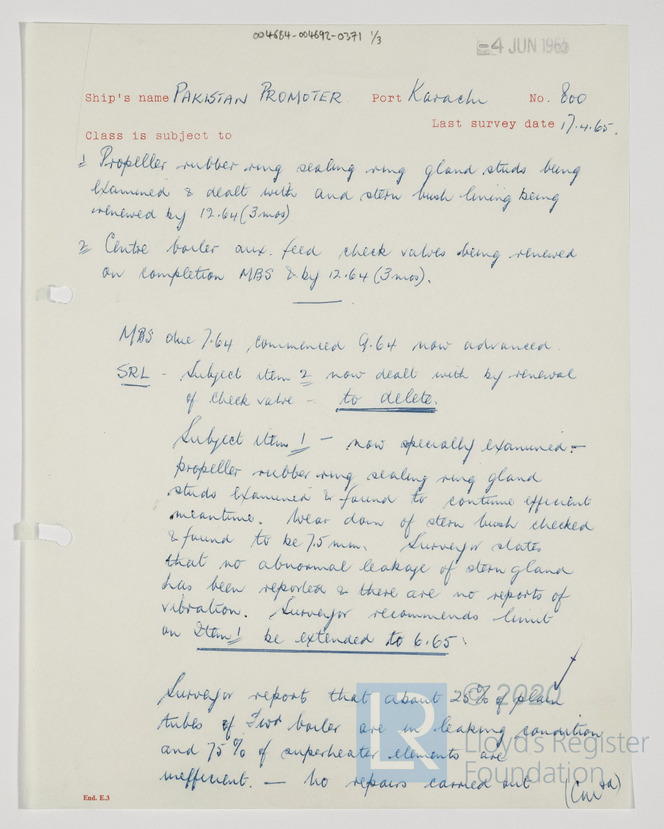 004684-004692-0371 1/3
-4 JUN 1965
Ship's name PAKISTAN PROMOTER Port Karachi No. 800
Last survey date 17.4.65.
Class is subject to
1 Propeller rubber ring sealing ring gland studs being
examined & dealt with and stern bush lining being
renewed by 12.64 (3mos)
2 Centre boiler aux. feed check valves being renewed
on completion MBS & by 12.64 (3mos).
MBS due 7.64, commenced 9.64 now advanced.
SRL - Subject item 2 now dealt with by renewal
of check valve - to delete.
Subject item 1 - now specially examined:-
propeller rubber ring sealing ring gland
studs examined & found to continue efficient
meantime. Wear down of stern bush checked
& found to be 7.5 mm. Surveyor states
that no abnormal leakage of stern gland
has been reported & there are no reports of
vibration. Surveyor recommends limit
on Item 1 be extended to 6.65:
Surveyor report that about 25% of plain
tubes of boiler are in leaking condition
and 75% of superheater elements are
inefficient. - No repairs carried out
(Contd)
End. E.3
© 2020
LR
Lloyd's Register
Foundation